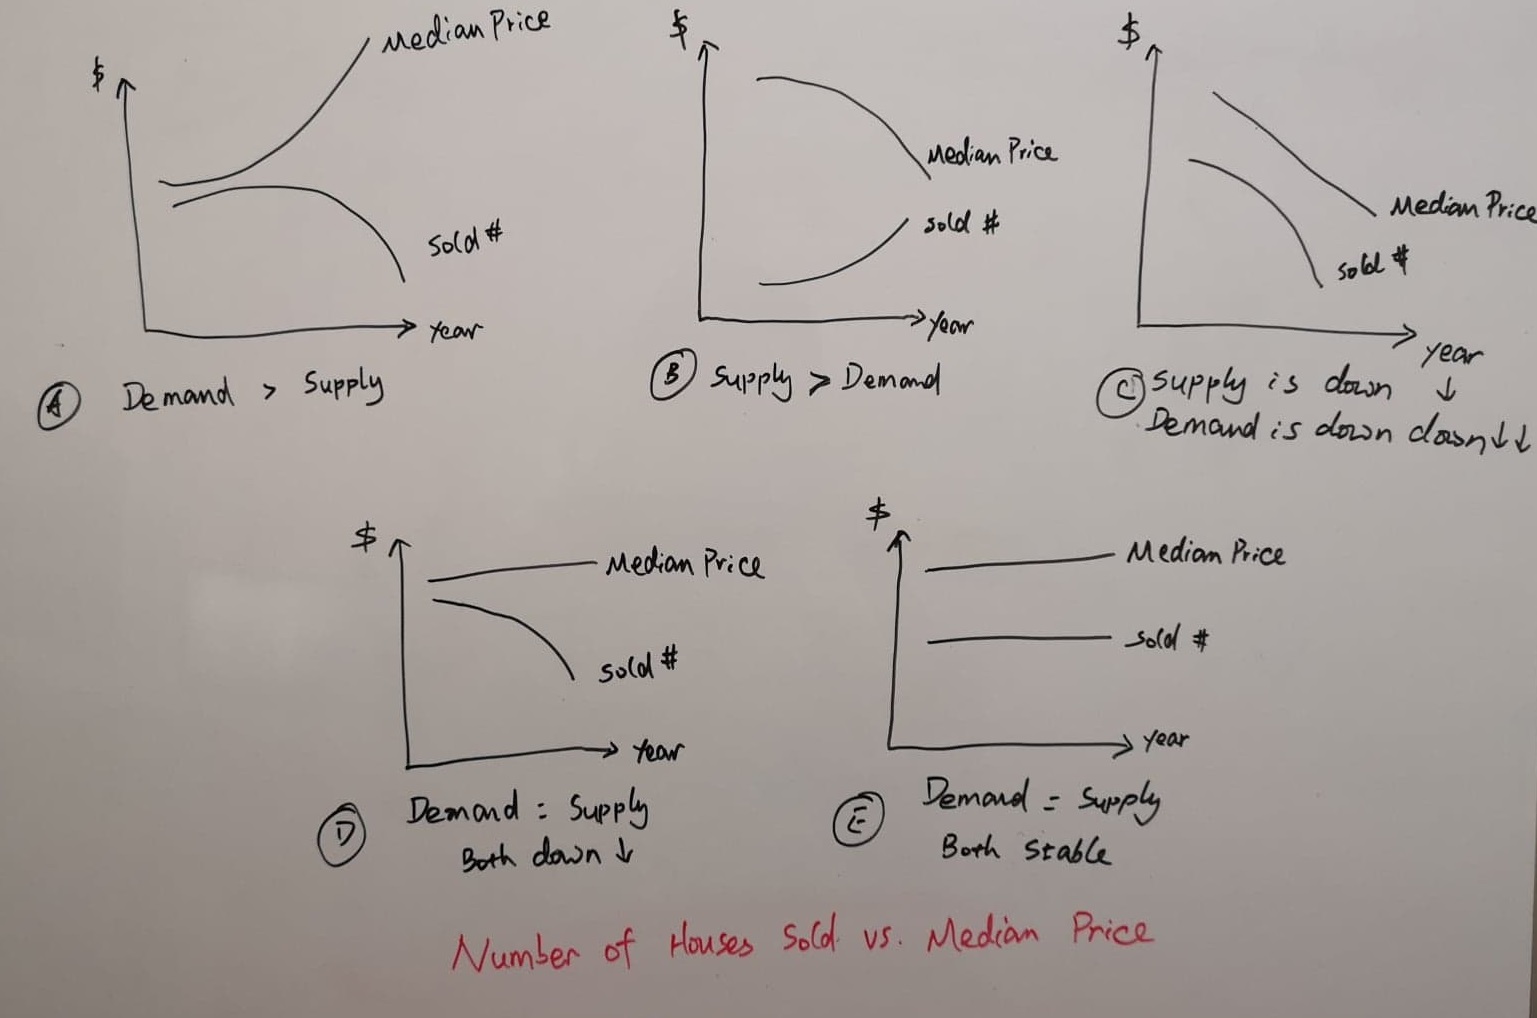 $
Median Price
Sold #
Year
A Demand > Supply
$
Median Price
Sold #
Year
B Supply > Demand
$
Median Price
Sold #
Year
C Supply is down ↓
Demand is down down ↓↓
$
Median Price
Sold #
Year
D Demand = Supply
Both down ↓
$
Median Price
Sold #
Year
E Demand = Supply
Both Stable
Number of Houses Sold vs. Median Price